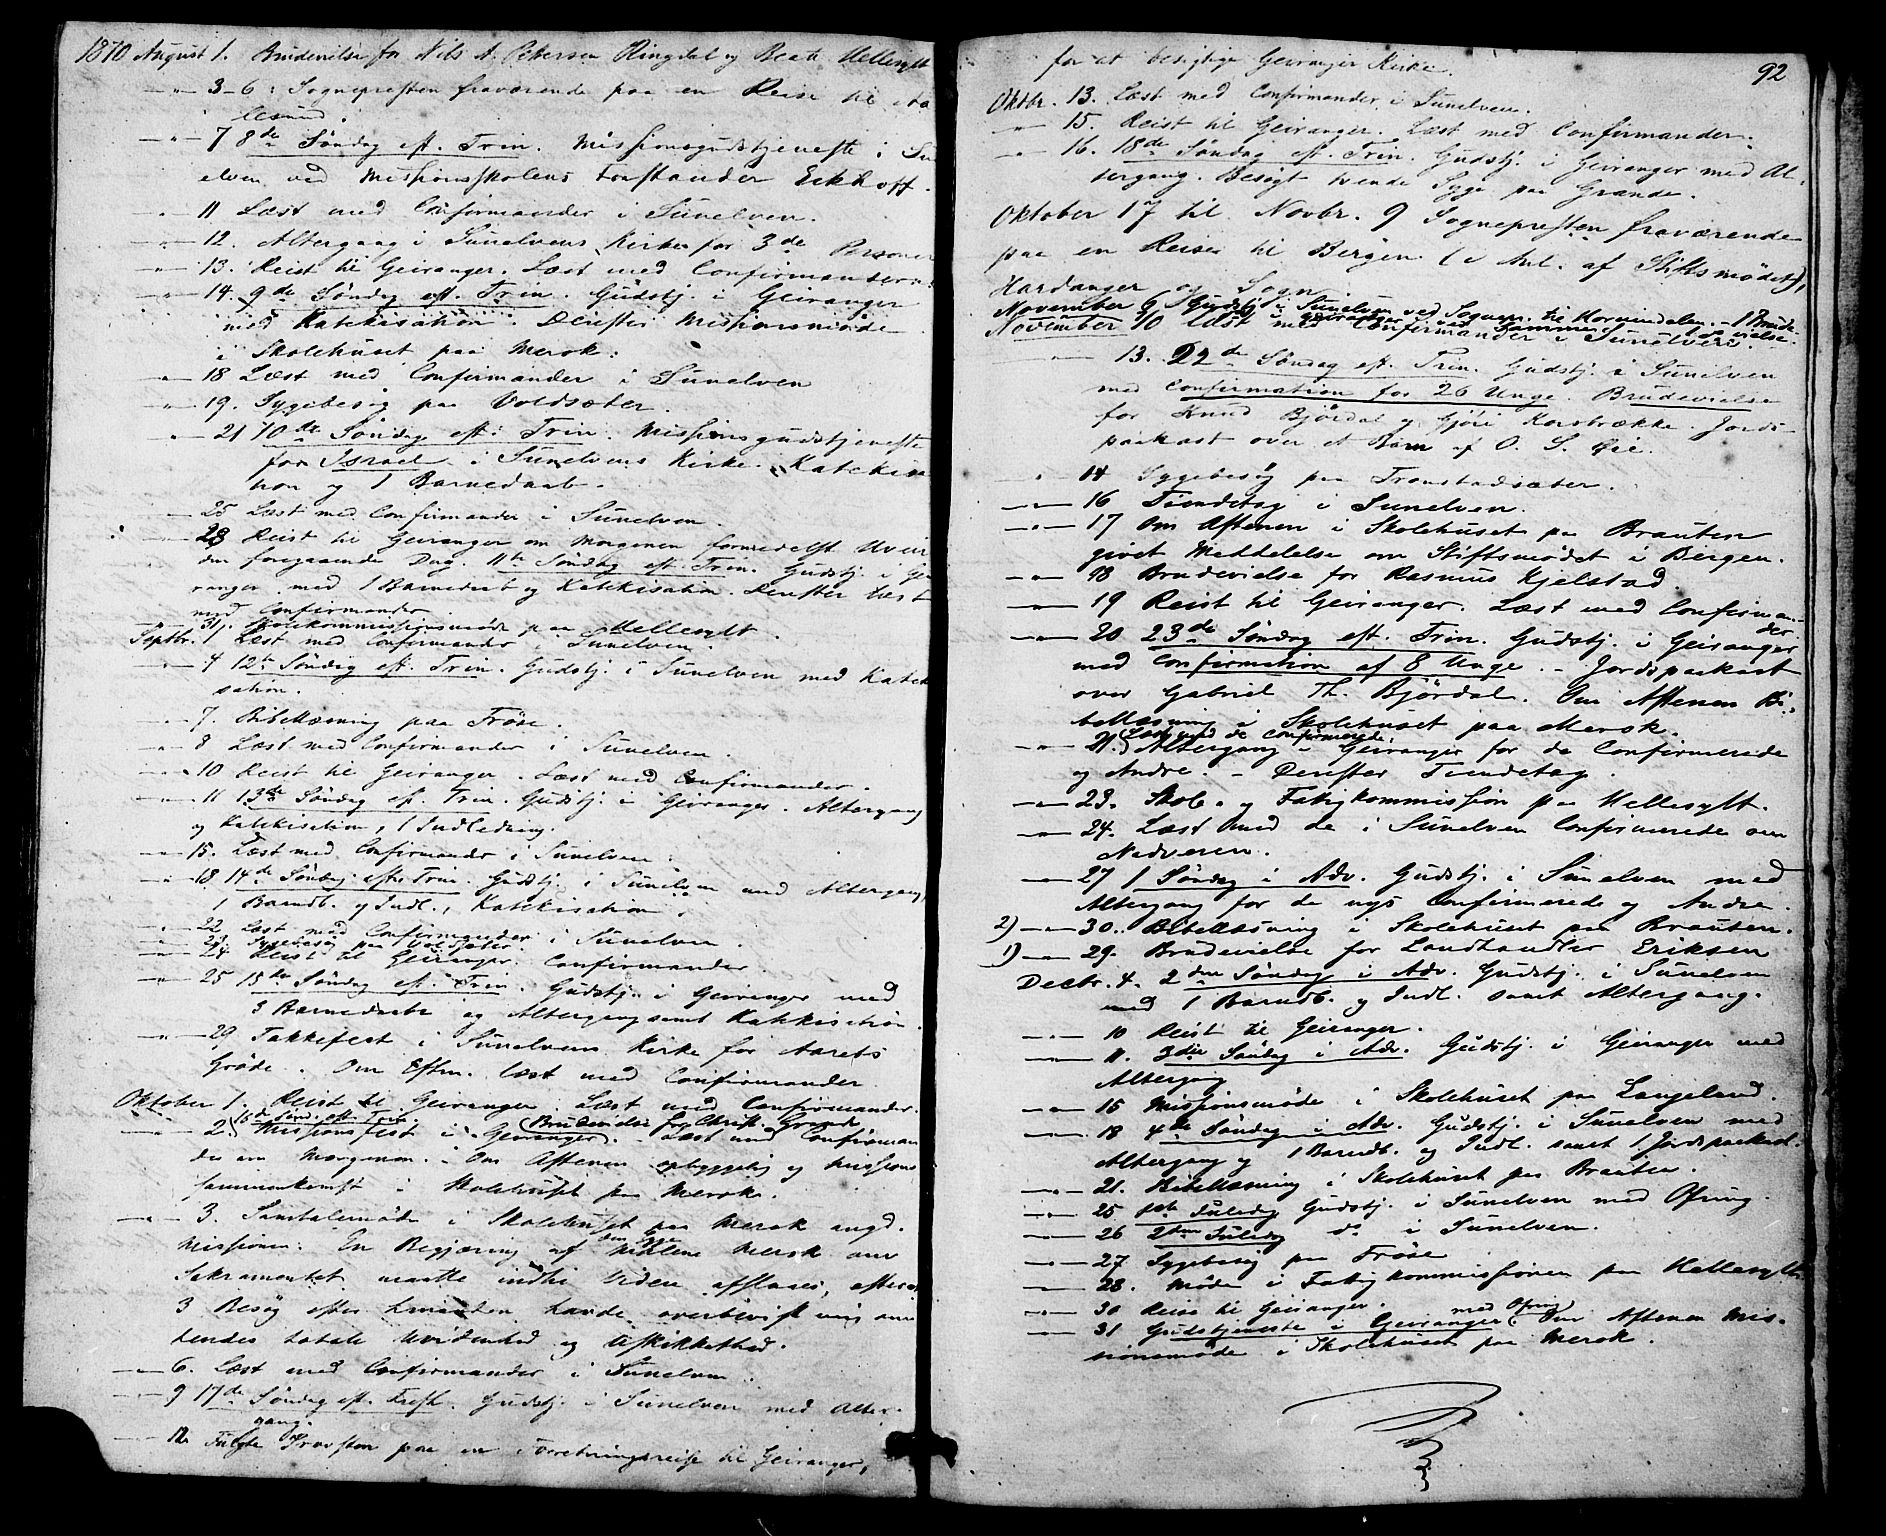 1870 August 1. Brudevielse for Nils A. Petersen Ringdal og Beate Hellesylt
-"- 3-6: Sognepresten fraværende paa en Reise til Aa
lesund.
-"- 7 8de Søndag eft. Trin. Missionsgudstjeneste i Su
elven ved Missionsskolens Forstander Eckhoff.
-"- 11 Læst med Confirmander i Sunelven.
-"- 12. Altergang i Sunelvens Kirke for 3de Personer
-"- 13. Reist til Geiranger. Læst med Confirmanderne.
-"- 14. 9de Søndag eft. Trin. Gudstj. i Geiranger
med Katekisation. Derefter Missionsmøde
i Skolehuset paa Merok.
-"- 18 Læst med Confirmander i Sunelven
-"- 19. Sygebesøg paa Voldsæter.
-"- 21 10de Søndag eft. Trin. Missionsgudstjeneste
for Israel i Sunelvens Kirke. Katekisa
tion og 1 Barnedaab.
-"- 25 Læst med Confirmander i Sunelven.
-"- 28 Reist til Geiranger om Morgenen formedelst Uveir
den foregaaende Dag. 11te Søndag eft. Trin. Gudstj. i Gei
ranger med 1 Barnedaab og Katekisation. Derefter læst
med Confirmander.
-"- 31. Skolekommissionsmøde paa Hellesylt.
Septbr. 1 Læst med Confirmander i Sunelven.
-"- 4 12te Søndag eft. Trin. Gudstj. i Sunelven med Kateki
sation.
-"- 7. Bibellæsning paa Frøse.
-"- 8 Læst med Confirmander i Sunelven.
-"- 10 Reist til Geiranger. Læst med Confirmander.
-"- 11 13de Søndag eft. Trin. Gudstj. i Geiranger. Altergang
og Katekisation, 1 Indledning.
-"- 15. Læst med Confirmander i Sunelven.
-"- 18 14de Søndag efter Trin. Gudstj. i Sunelven med Altergang,
1 Barnedb. og Indl., Katekisation.
-"- 22 Læst med Confirmander i Sunelven.
-"- 23 Sygebesøg paa Voldsæter
-"- 24 Reist til Geiranger. Confirmander.
-"- 25 15de Søndag eft. Trin. Gudstj. i Geiranger med
3 Barnedaabe og Altergang samt Katekisation.
-"- 29 Takkefest i Sunelvens Kirke for Aarets
Grøde. Om Eftm. læst med Confirmander.
Oktober 1. Reist til Geiranger. Læst med Confirmander.
16de Sønd. eft. Trin (Brudevielse for Christ. Grande
-"- 2. Missionsfest i Geiranger. - Læst med Confirman
der om Morgenen. - Om Aftenen opbyggelig og Missions
sammenkomst i Skolehuset paa Merok.
-"- 3. Samtalemøde i Skolehuset paa Merok angd.
Missionen. En Begjæring af den Syge Malene Merok om
Sakramentet maatte indtil Viden afslaaes, efterat
3 Besøg efter hinanden havde overbevist mig om
hendes totale Uvidenhed og Uskikkethed.
-"- 6. Læst med Confirmander i Sunelven.
-"- 9 17de Søndag eft. Trefh. Gudstj. i Sunelven med Alter-
gang.
-"- 12. Fulgte Provsten paa en Forretningsreise til Geiranger,
92
for at besigtige Geiranger Kirke.
Oktbr. 13. Læst med Confirmander i Sunelven.
-"- 15. Reist til Geiranger. Læst med Confirmander.
-"- 16. 18de Søndag eft. Trin. Gudstj. i Geiranger med Al-
tergang. Besøgt tvende Syge paa Grande.
Oktober 17 til Novbr. 9 Sognepresten fraværende
paa en Reise til Bergen (i Anl. af Stiftsmødet),
Hardanger og Sogn.
November 6 Gudstj. i Sunelven ved Sognepr. til Hornindalen - 1 Brude-
vielse.
November 10 Læst med Confirmander i Sunelven.
-"- 13. 22de Søndag eft. Trin. Gudstj. i Sunelven
med Confirmation for 26 Unge. Brudevielse
for Knud Bjørdal og Gjøri Korsbrække. Jords-
paakast over et Barn af O. S. Øie.
-"- 14 Sygebesøg paa Tronstadsæter.
-"- 16 Tiendetag i Sunelven.
-"- 17 Om Aftenen i Skolehuset paa Brauten
givet Meddelelse om Stiftsmødet i Bergen.
-"- 18 Brudevielse for Rasmus Kjelstad.
-"- 19 Reist til Geiranger. Læst med Confirman-
der
-"- 20 23de Søndag eft. Trin. Gudstj. i Geiranger
med Confirmation af 8 Unge. - Jordspaakast
over Gabriel Th. Bjørdal. Om Aftenen Bi-
bellæsning i Skolehuset paa Merok.
(Læst med de Confirmerede
-"- 21. Altergang i Geiranger for de Confirmerede
og Andre. - Derefter Tiendetag.
-"- 23. Skole- og Fattigkommission paa Hellesylt.
-"- 24. Læst med de i Sunelven Confirmerede om
Nadveren.
-"- 27 1 Søndag i Adv. Gudstj. i Sunelven med
Altergang for de nys Confirmerede og Andre.
2) -"- 30. Bibellæsning i Skolehuset paa Brauten.
1) -"- 29. Brudevielse for Landhandler Eriksen
Decbr. 4. 2den Søndag i Adv. Gudstj. i Sunelven
med 1 Barndb. og Indl. samt Altergang.
-"- 10 Reist til Geiranger.
-"- 11. 3die Søndag i Adv. Gudstj. i Geiranger med
Altergang
-"- 15 Missionsmøde i Skolehuset paa Langeland.
-"- 18 4de Søndag i Adv. Gudstj. i Sunelven med
Altergang og 1 Barndb. og Indl. samt 1 Jordspaakast.
-"- 21. Bibellæsning i Skolehuset paa Brauten.
-"- 25 1ste Juledag Gudstj. i Sunelven med Ofring.
-"- 26 2den Juledag do i Sunelven.
-"- 27 Sygebesøg paa Frøse
-"- 28. Møde i Fattigkommissionen paa Hellesylt
-"- 30 Reise til Geiranger.
-"- 31 Gudstjeneste i Geiranger med Ofring. Om Aftenen Mis-
sionsmøde i Skolehuset paa Merok.